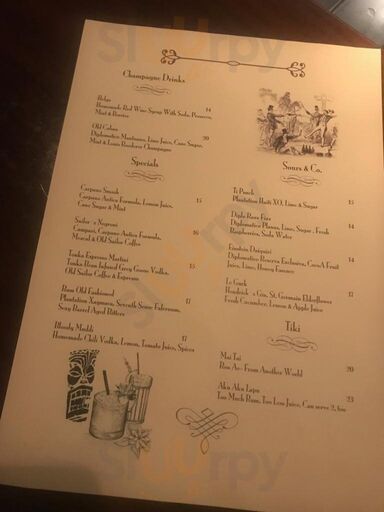 Champagne Drinks
14
Homemade Red Wine Syrup With Soda, Prosecco,
Mint & Berries
Old Cuban 20
Diplomatico Mantuano, Lime Juice, Cane Sugar,
Mint & Louis Roederer Champagne
Specials
Carpano Smash 15
Carpano Antica Formula, Lemon Juice,
Cane Sugar & Mint
Sailor's Negroni 16
Campari, Carpano Antica Formula,
Mezcal & Old Sailor Coffee
Tonka Espresso Martini 15
Tonka Bean Infused Grey Goose Vodka,
Old Sailor Coffee & Espresso
Rum Old Fashioned 17
Plantation Xaymaca, Seventh Sense Falernum,
Sexy Barrel Aged Bitters
Bloody Maddi 17
Homemade Chili Vodka, Lemon, Tomato Juice, Spices
Sours & Co.
Ti Punch 15
Plantation Haiti XO, Lime & Sugar
Diplo Rum Fizz 14
Diplomatico Planas, Lime, Sugar, Fresh
Raspberries, Soda Water
Einstein Daiquiri 14
Diplomatico Reserva Exclusiva, Cocoa Fruit
Juice, Lime, Honey Essence
Le Gurk 17
Hendrick's Gin, St. Germain Elderflower
Fresh Cucumber, Lemon & Apple Juice
Tiki
Mai Tai 20
Rum As- From Another World
Aku Aku Lapu 23
Too Much Rum, Too Less Juice, Can serve 2, too
Slurrpy
Slurrpy